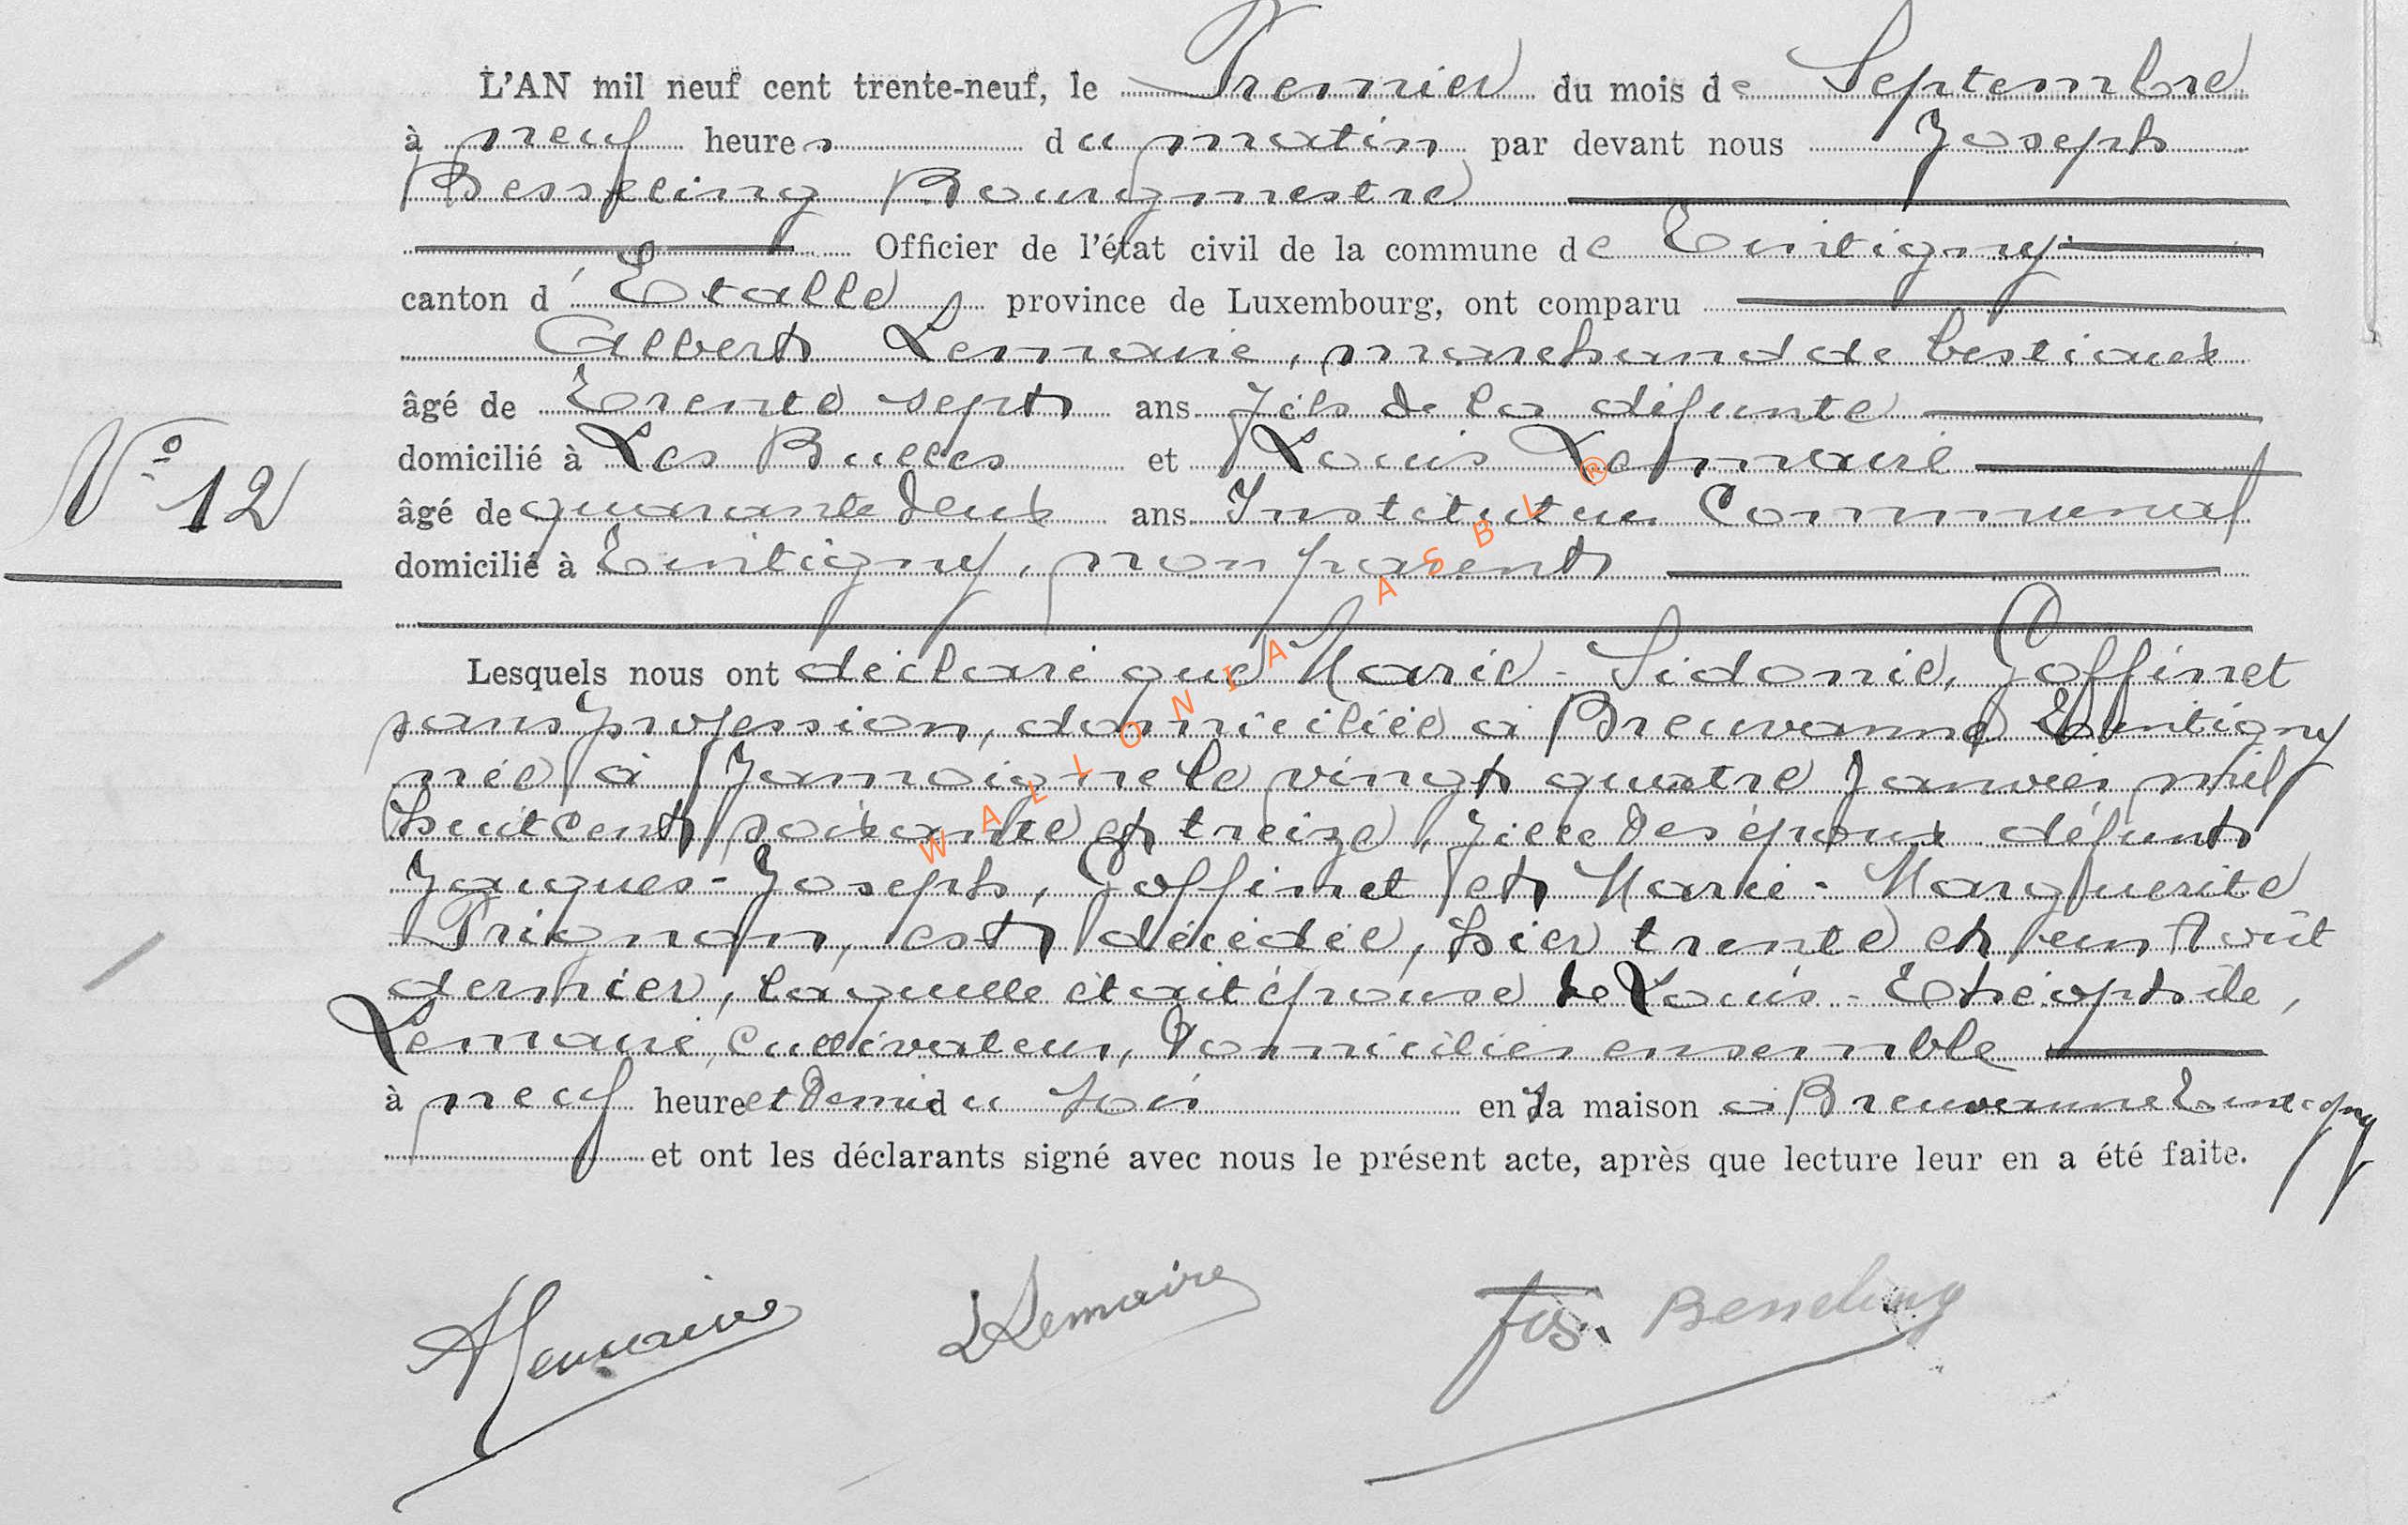 L'AN mil neuf cent trente-neuf, le Premier du mois de Septembre
à neuf heures du matin par devant nous Joseph
Besseling Bourgmestre
Officier de l'état civil de la commune de Tintigny
canton d'Etalle province de Luxembourg, ont comparu
Albert Lemaire, marchand de bestiaux
âgé de Trente sept ans fils de la défunte
domicilié à Les Bulles et Louis Lemaire
N° 12
âgé de quarante deux ans Instituteur Communal
domicilié à Tintigny, non parent
Lesquels nous ont déclaré que Marie-Sidonie, Goffinet
sans profession, domiciliée à Breuvanne Tintigny
née à Jamoigne le vingt quatre Janvier mil
huit cent soixante et treize, fille des époux défunts
Jacques-Joseph, Goffinet et Marie-Marguerite
Prignon, est décédée, hier trente et un Août
dernier, laquelle était épouse de Louis-Théophile,
Lemaire, cultivateur, domiciliés ensemble
à neuf heure et demie du soir en sa maison à Breuvanne Tintigny
et ont les déclarants signé avec nous le présent acte, après que lecture leur en a été faite.
ALemaire LLemaire Jos. Besseling
WALLONIA ASBL ®